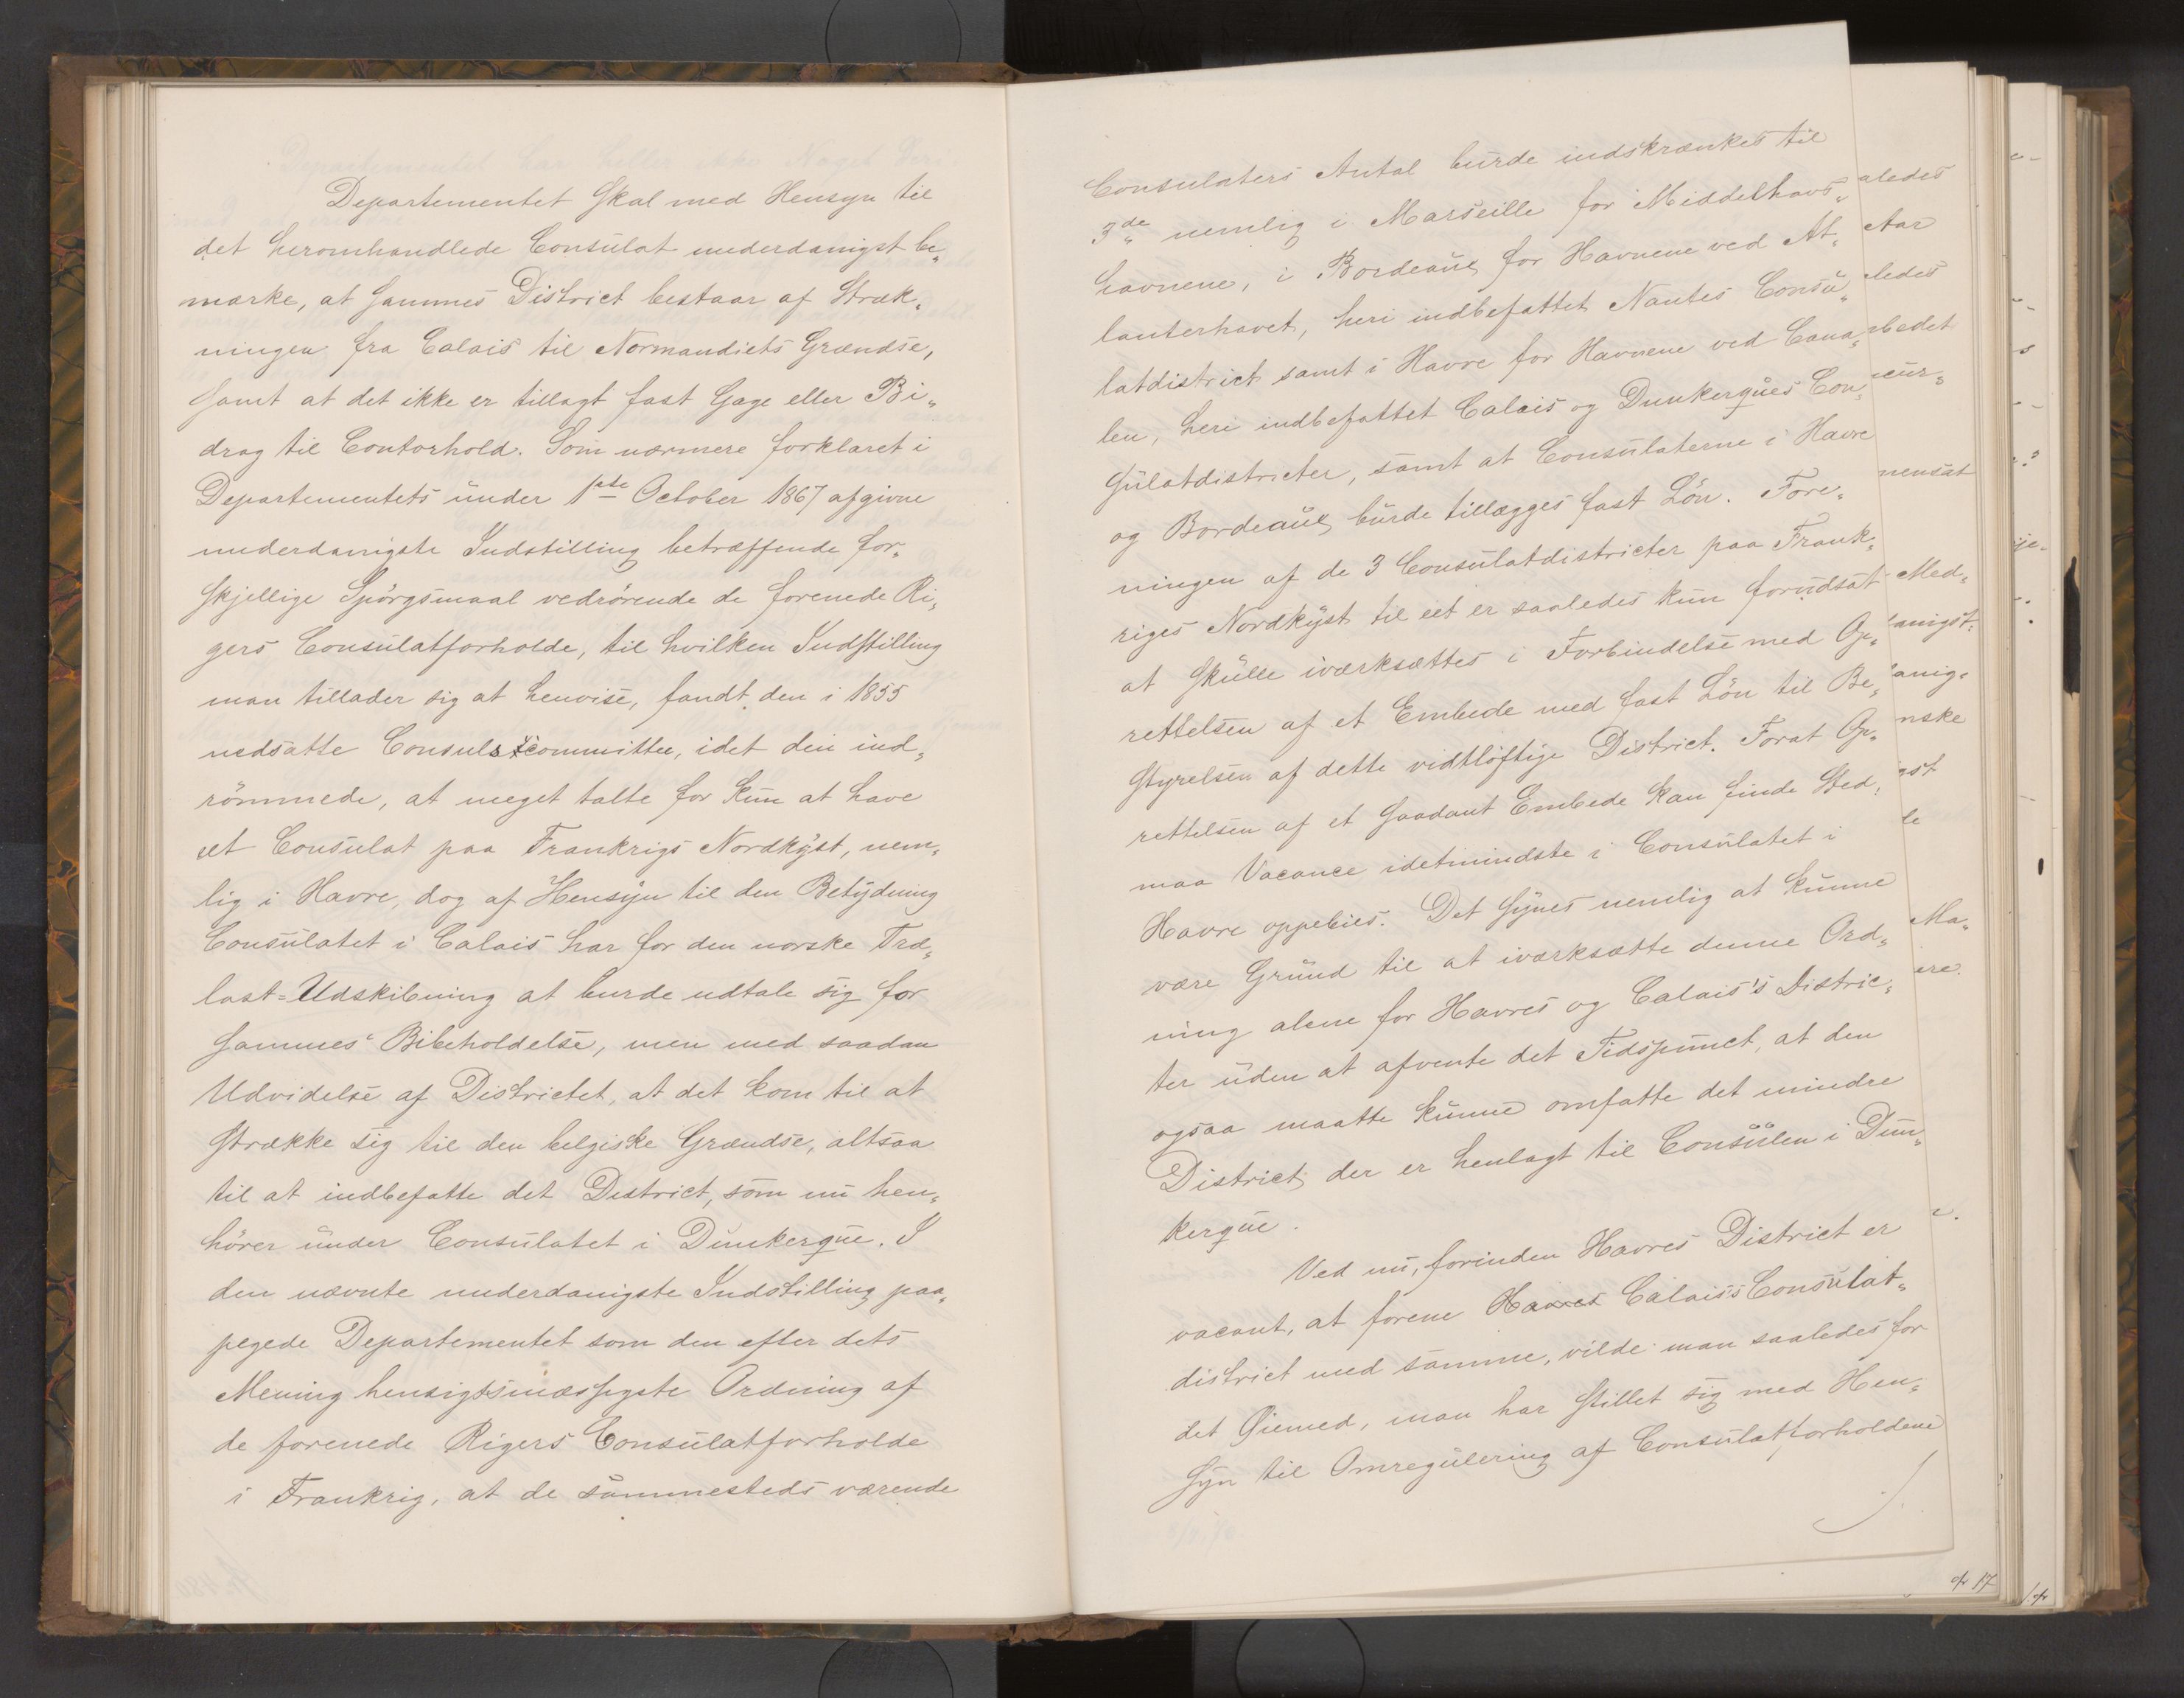 Departementet skal med Hensyn til
det heromhandlede Consulat underdanigst be„
mærke, at sammes District bestaar af Stræk„
ningen fra Calais til Normandiets Grændse,
samt at det ikke er tillagt fast Gage eller Bi„
drag til Contorhold. Som nærmere forklaret i
Departementets under 1ste October 1867 afgivne
underdanigste Indstilling betræffende for„
skjellige Spörgsmaal vedrörende de forenede Ri„
gers Consulatforholde, til hvilken Indstilling
man tillader sig at henvise, fandt den i 1855
nedsatte Consulscommittee, idet den ind„
römmede, at meget talte for kun at have
eet Consulat paa Frankrigs Nordkyst, nem„
lig i Havre, dog af Hensyn til den Betydning
Consulatet i Calais har for den norske Træ„
last=Udskibning at burde udtale sig for
sammes Bibeholdelse, men med saadan
Udvidelse af Districtet, at det kom til at
strække sig til den belgiske Grændse, altsaa
til at indbefatte det District, som nu hen„
hörer under Consulatet i Dunkerque. I
den nævnte underdanigste Indstilling paa„
pegede Departementet som den efter dets
Mening hensigtsmæssigste Ordning af
de forenede Rigers Consulatforholde
i Frankrig, at de sammesteds værende
Consulaters Antal burde indskrænkes til
3de nemlig i Marseille for Middelhavs„
havnene, i Bordeaux for Havnene ved At„
lanterhavet, heri indbefattet Nantes Consu„
latdistrict samt i Havre for Havnene ved Cana„
len, heri indbefattet Calais og Dunkerques Con„
sulatdistricter, samt at Consulaterne i Havre
og Bordeaux burde tillægges fast Lön. Fore„
ningen af de 3 Consulatdistricter paa Frank„
riges Nordkyst til eet er saaledes kun forudsat
at skulle iværksættes i Forbindelse med Op„
rettelsen af et Embede med fast Lön til Be„
styrelsen af dette vidtlöftige District. Forat Op„
rettelsen af et saadant Embede kan finde Sted,
maa Vacance idetmindste i Consulatet i
Havre oppebies. Det synes nemlig at kunne
være Grund til at iværksætte denne Ord„
ning alene for Havres og Calais's Distric„
ter uden at afvente det Tidspunct, at den
ogsaa maatte kunne omfatte det mindre
District, der er henlagt til Consulen i Dun„
kerque.
Ved nu, forinden Havres District er
vacant, at forene Havres Calais's Consulat„
district med samme, vilde man saaledes for
det Øiemed, man har stillet sig med Hen„
syn til Omregulering af Consulatforholdene
aledes
Aar
ledes
bedet
cur„
nensat
Med„
anigst„
anig„
nske
gst
le
Ma„
ere.
17